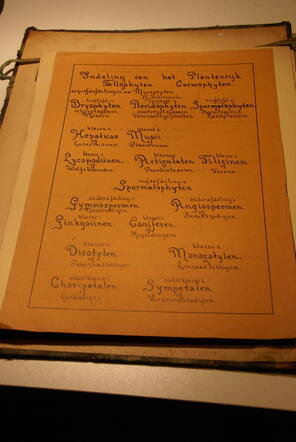 Indeling van het Plantenrijk.
Tallophyten Cormophyten.
Bryophyten. Pteridophyten. Spermatophyten.
Mossen Zaadplanten
klasse 1 klasse 2
Hepaticae Musci.
Levermossen. Bladmossen.
klasse 1 klasse 2 klasse 3
Lycopodiinen. Articulaten Filicinen
Wolfsklauwen. Paardestaarten Varens
Spermatophyten
onderafdeling 1 onderafdeling 2
Gymnospermen Angiospermen
Naaktzadigen Bedektzadigen.
klasse 1 klasse 2
Ginkgoiinen Coniferen.
Kegeldragers
klasse 1 klasse 2
Dicotylen. Monocotylen.
Tweezaadlobbigen Eenzaadlobbigen
onderklasse 1 onderklasse 2
Choripetalen Sympetalen
Losbladigen Vergroeidbladigen